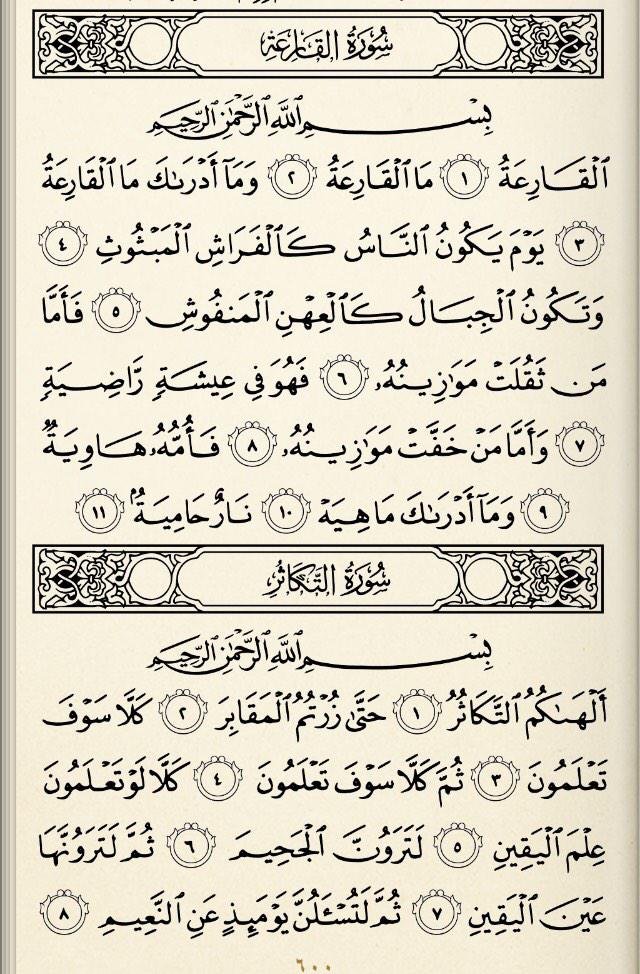 سُورَةُ القَارِعَةِ
بِسْمِ ٱللَّهِ ٱلرَّحْمَٰنِ ٱلرَّحِيمِ
ٱلْقَارِعَةُ ١ مَا ٱلْقَارِعَةُ ٢ وَمَآ أَدْرَىٰكَ مَا ٱلْقَارِعَةُ
٣ يَوْمَ يَكُونُ ٱلنَّاسُ كَٱلْفَرَاشِ ٱلْمَبْثُوثِ ٤
وَتَكُونُ ٱلْجِبَالُ كَٱلْعِهْنِ ٱلْمَنفُوشِ ٥ فَأَمَّا
مَن ثَقُلَتْ مَوَٰزِينُهُۥ ٦ فَهُوَ فِى عِيشَةٍ رَّاضِيَةٍ
٧ وَأَمَّا مَنْ خَفَّتْ مَوَٰزِينُهُۥ ٨ فَأُمُّهُۥ هَاوِيَةٌ
٩ وَمَآ أَدْرَىٰكَ مَا هِيَهْ ١٠ نَارٌ حَامِيَةٌۢ ١١
سُورَةُ التَّكَاثُرِ
بِسْمِ ٱللَّهِ ٱلرَّحْمَٰنِ ٱلرَّحِيمِ
أَلْهَىٰكُمُ ٱلتَّكَاثُرُ ١ حَتَّىٰ زُرْتُمُ ٱلْمَقَابِرَ ٢ كَلَّا سَوْفَ
تَعْلَمُونَ ٣ ثُمَّ كَلَّا سَوْفَ تَعْلَمُونَ ٤ كَلَّا لَوْ تَعْلَمُونَ
عِلْمَ ٱلْيَقِينِ ٥ لَتَرَوُنَّ ٱلْجَحِيمَ ٦ ثُمَّ لَتَرَوُنَّهَا
عَيْنَ ٱلْيَقِينِ ٧ ثُمَّ لَتُسْـَٔلُنَّ يَوْمَئِذٍ عَنِ ٱلنَّعِيمِ ٨
٦٠٠